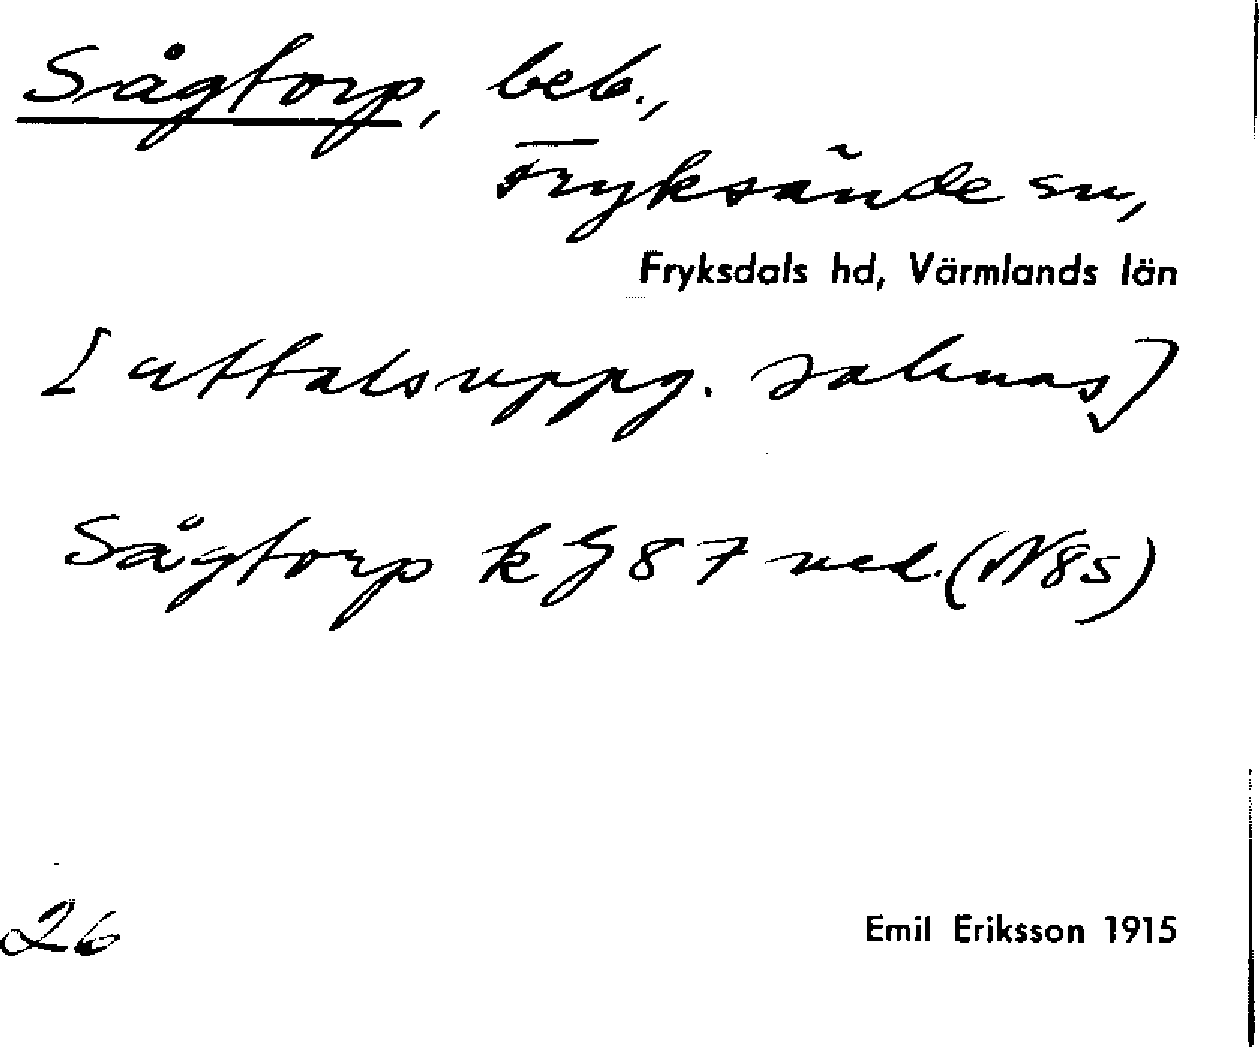 Sågtorp, beb.,
Fryksände sn,
Fryksdals hd, Värmlands län
[uttalsuppg. saknas]
Sågtorp k G 87 ned. (N85)
26
Emil Eriksson 1915